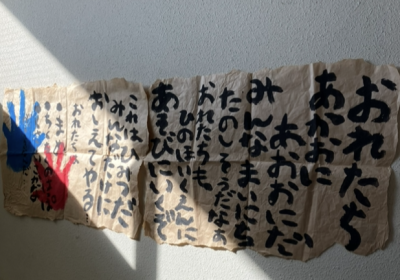 おれたち
あかおに
あおおにだ
みんなまいにち
たのしそうだなあ
おれたちも
ひのほいくえんに
あそびにいくぞ
これは、ひみつだ
みんなだけに
おしえてやる…
おれたちは